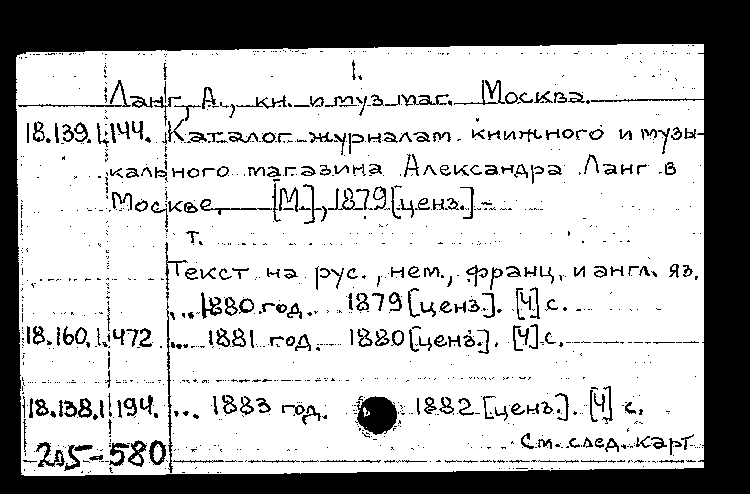 1.
Ланг, А., кн. и муз. маг. Москва.
18.139.1.144. Каталог журналам книжного и музы-
кального магазина Александра Ланг в
Москве. [М.], 1879 [ценз.] -
т.
Текст на рус., нем., франц. и англ. яз.
... 1880 год. 1879 [ценз.]. [4] с.
18.160.1.472 ... 1881 год. 1880 [ценз.]. [4] с.
18.138.1.194. ... 1883 год. 1882 [ценз.]. [4] с.
См. след. карт
205-580